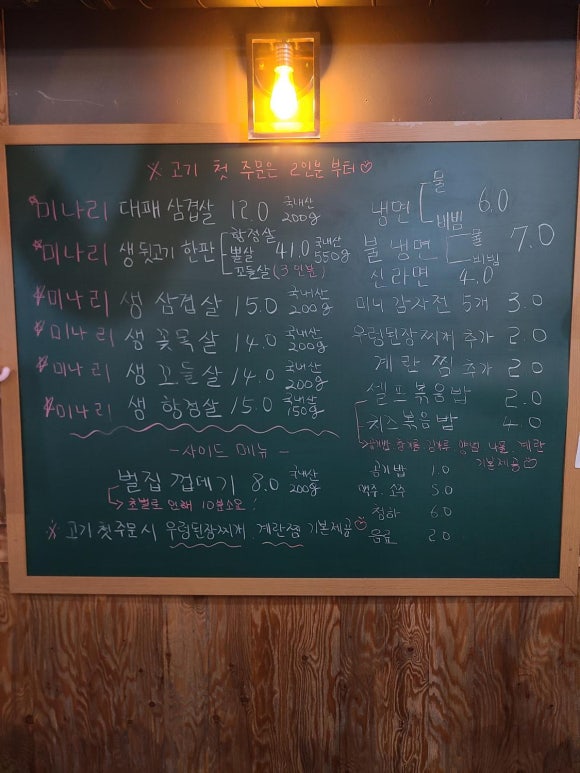 ※ 고기 첫 주문은 2인분 부터♡
*미나리 대패 삼겹살 12.0 국내산 200g
*미나리 생 뒷고기 한판 [항정살 뽈살 꼬들살 41.0 (3인분) 국내산 550g
*미나리 생 삼겹살 15.0 국내산 200g
*미나리 생 꽃목살 14.0 국내산 200g
*미나리 생 꼬들살 14.0 국내산 200g
*미나리 생 항정살 15.0 국내산 150g
-사이드 메뉴-
벌집 껍데기 8.0 국내산 200g
↳ 초벌로 인해 10분소요!
※ 고기 첫주문시 우렁된장찌개, 계란찜 기본제공♡
냉면 [물 비빔 6.0
불냉면 [물 비빔 7.0
신라면 4.0
미니 감자전 5개 3.0
우렁된장찌개 추가 2.0
계란찜 추가 2.0
셀프볶음밥 2.0
치즈볶음밥 4.0
김가루 양념 나물, 계란
기본제공♡
공기밥 1.0
맥주. 소주 5.0
청하 6.0
음료 2.0